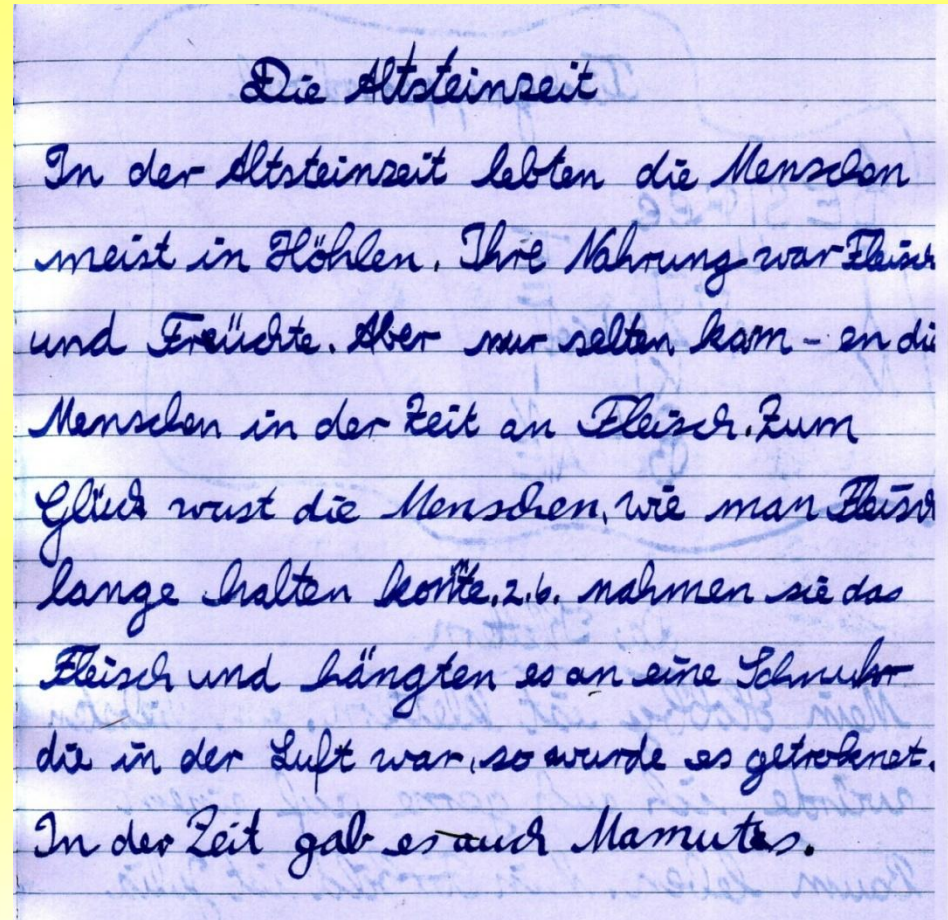 Die Altsteinzeit
In der Altsteinzeit lebten die Menschen
meist in Höhlen. Ihre Nahrung war Fleisch
und Freüchte. Aber nur selten kam - en die
Menschen in der Zeit an Fleisch. Zum
Glück wust die Menschen, wie man Fleisch
lange halten konte. z.b. nahmen sie das
Fleisch und hängten es an eine Schnuhr
die in der Luft war, so wurde es getroknet.
In der Zeit gab es auch Mamutes.